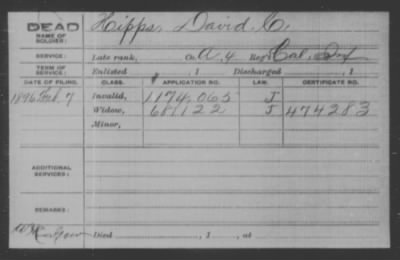 DEAD Hipps, David, C.
NAME OF SOLDIER:
SERVICE: Late rank, Co. A, 4 Reg't Cal. Inf
TERM OF SERVICE: Enlisted , 1 Discharged , 1
DATE OF FILING. CLASS. APPLICATION NO. LAW. CERTIFICATE NO.
1896 Feb. 7 Invalid, 1174,065 J
Widow, 681122 J 474283
Minor,
ADDITIONAL SERVICES:
REMARKS:
Died , 1 , at